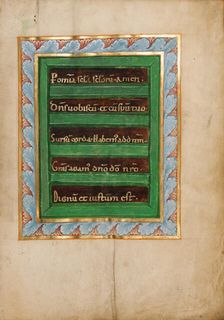 P omīa scła scłorū. Amen.
Dn̄s uobiscū. et cū sp̄u tuo.
Sursū corda. Habem' ad dn̄m.
Grās agam' dn̄o dō n̄ro.
Dignū et iustum est.